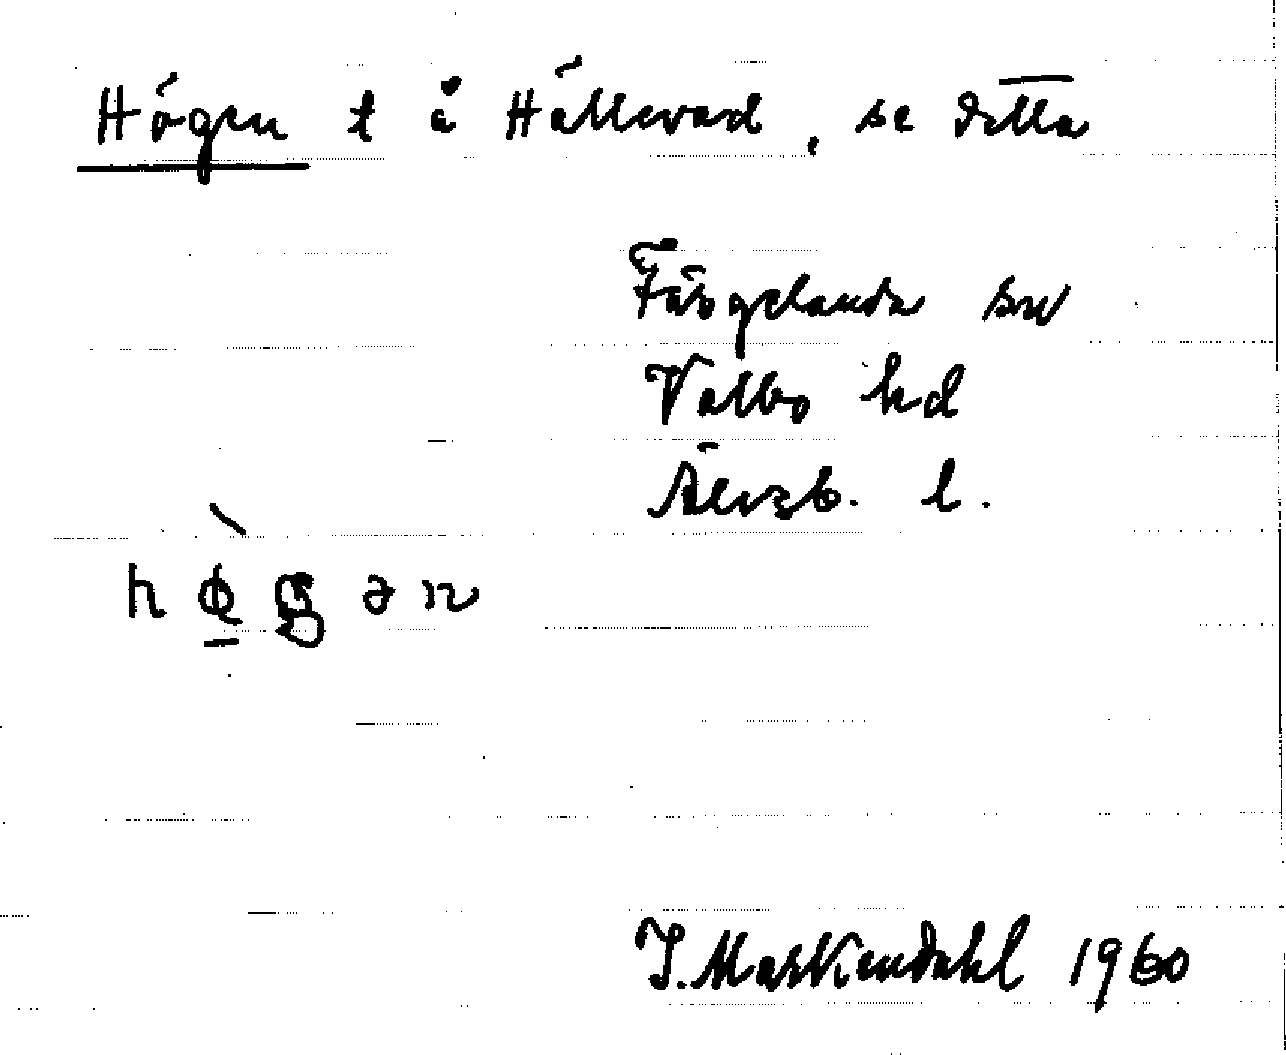 Högen t å Hällevad, se detta
Färgelanda sn
Valbo hd
Älvsb. l.
I. Markendahl 1960